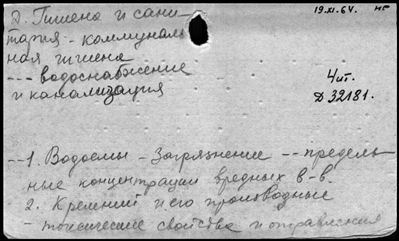 2. Гигиена и сани
тария - коммуналь
ная гигиена
--- водоснабжение
и канализация
19.XI.64. нг
4 шт.
Д 32181.
-- 1. Водоемы - Загрязнение -- предель
ные концентрации вредных в-в.
2. Кремний и его производные
- токсические свойства и отравления